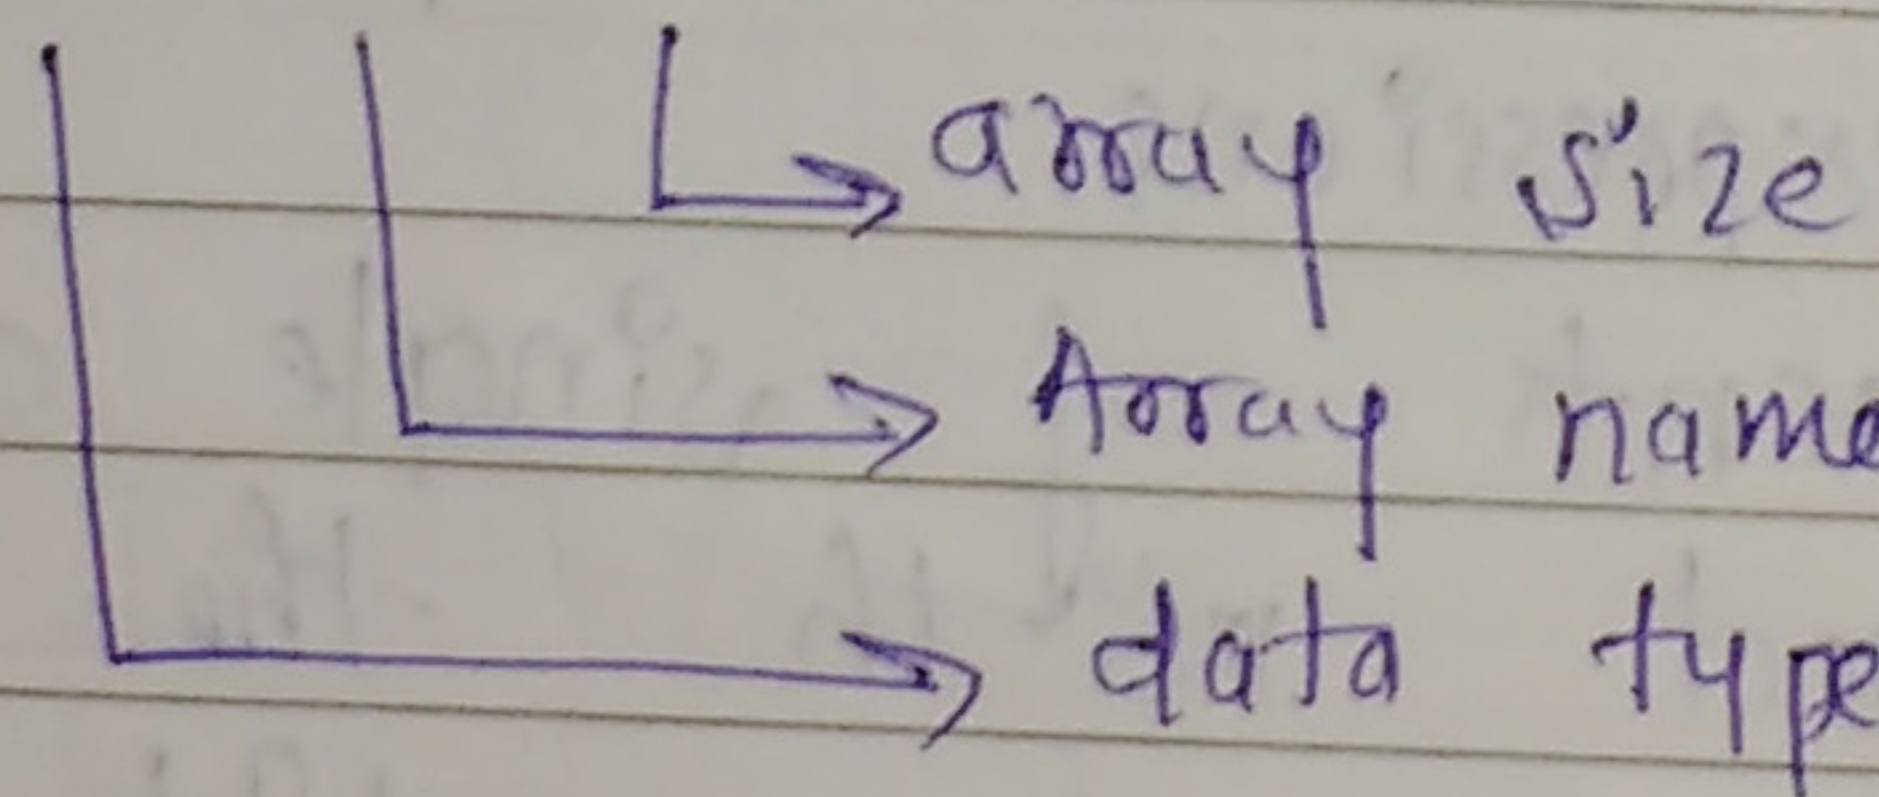 array size
Array name
data type